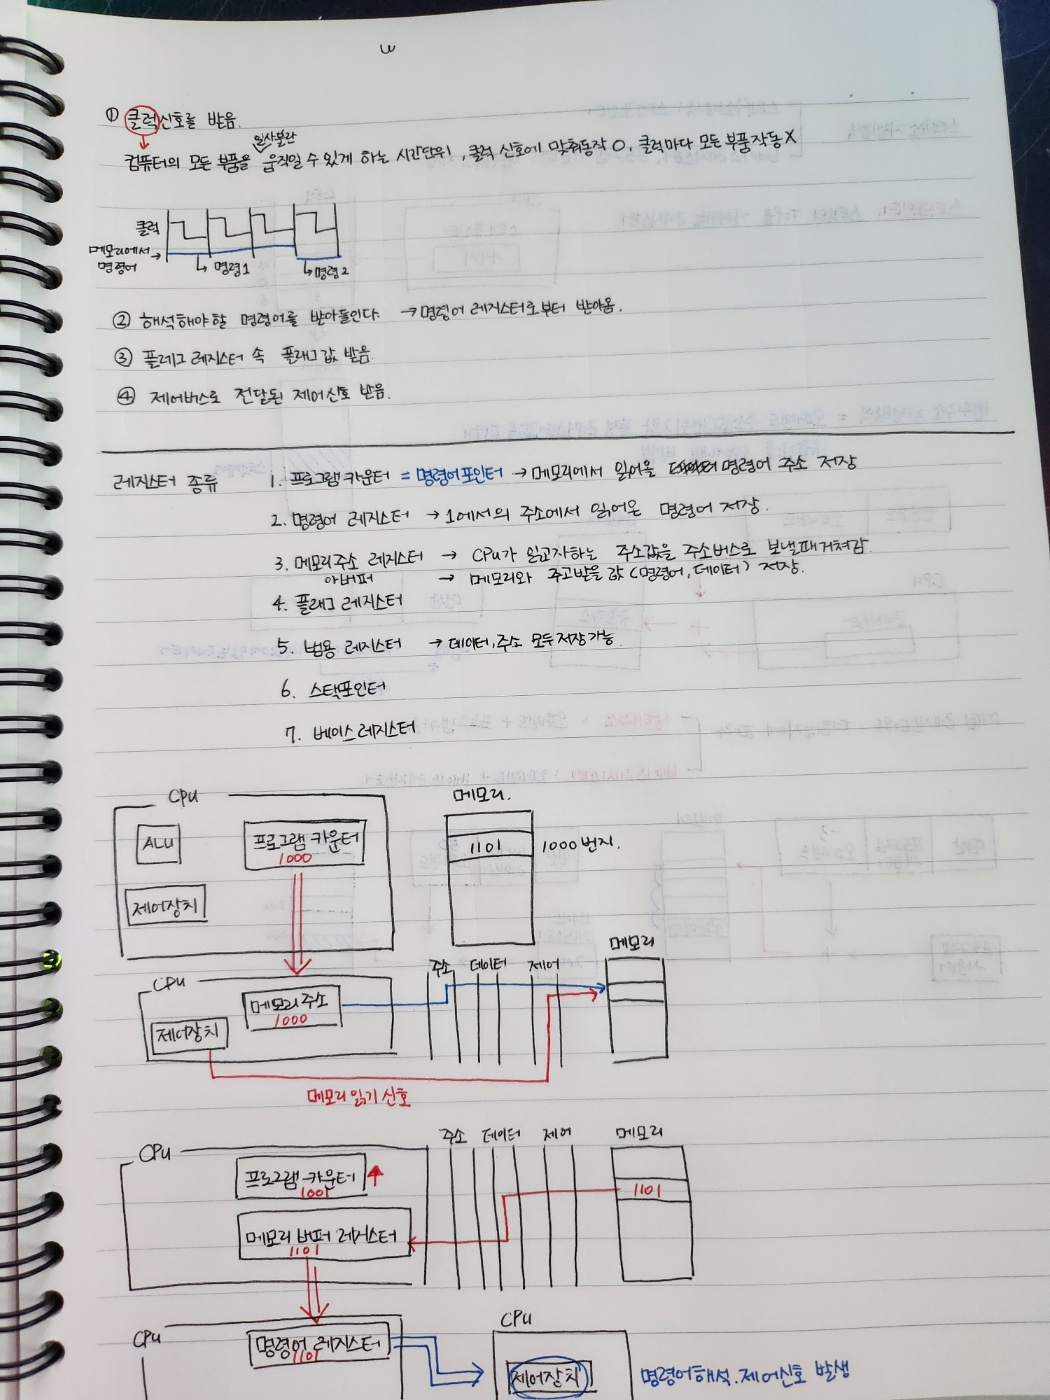 ① 클럭신호를 받음.
일사불란
컴퓨터의 모든 부품을 움직일 수 있게 하는 시간단위, 클럭 신호에 맞춰동작 O, 클럭마다 모든 부품 작동 X
클럭
메모리에서 → 명령어
↳ 명령1
↳ 명령2
② 해석해야할 명령어를 받아들인다. → 명령어 레지스터로부터 받아옴.
③ 플래그 레지스터 속 플래그 값 받음.
④ 제어버스로 전달된 제어신호 받음.
레지스터 종류
1. 프로그램 카운터 = 명령어포인터 → 메모리에서 읽어올 명령어 주소 저장
2. 명령어 레지스터 → 1에서의 주소에서 읽어온 명령어 저장.
3. 메모리주소 레지스터 → CPU가 읽고자하는 주소값을 주소버스로 보낼때거쳐감.
〃버퍼 → 메모리와 주고받을 값(명령어, 데이터) 저장.
4. 플래그 레지스터
5. 범용 레지스터 → 데이터, 주소 모두저장가능.
6. 스택포인터
7. 베이스레지스터
CPU
ALU
프로그램 카운터
1000
제어장치
메모리.
1101
1000번지.
CPU
메모리 주소
1000
제어장치
주소 데이터 제어
메모리
메모리 읽기 신호
CPU
프로그램 카운터
1001
메모리 버퍼 레지스터
1101
주소 데이터 제어
메모리
1101
CPU
명령어 레지스터
1101
CPU
제어장치
명령어해석. 제어신호 발생